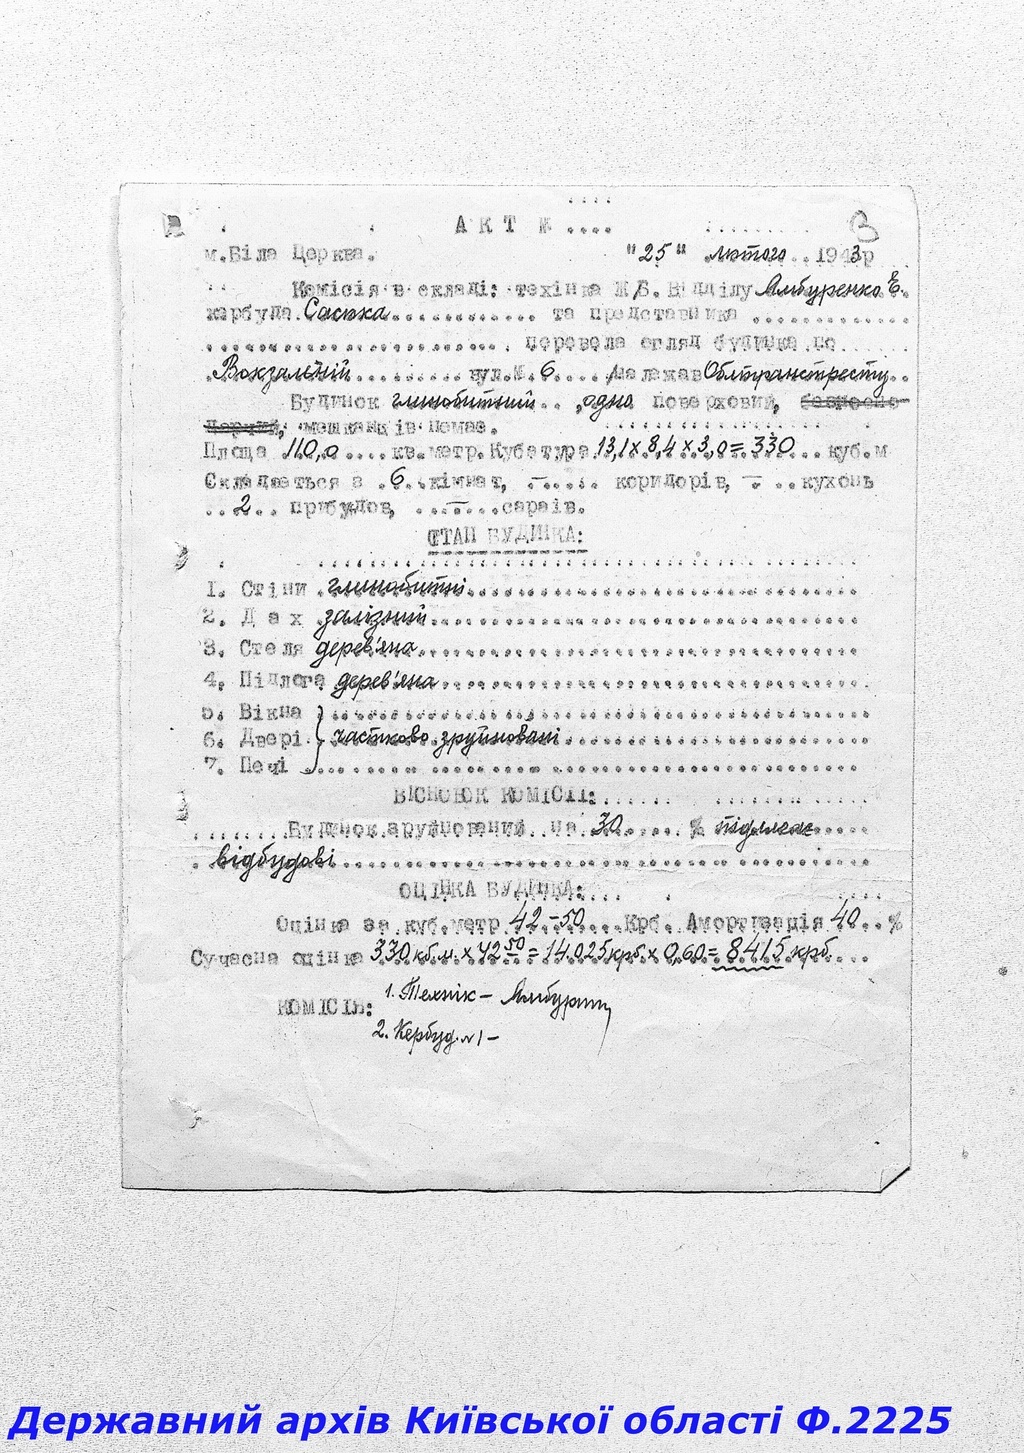 3
АКТ №....
м.Біла Церква. "25" лютого 1943р
Комісія в складі: техніка Ж.Б. Відділу Ямбуренко Е.
кербуда Саєнка та представника
перевела огляд будинка по
Вокзальній вул.№ 6 належав Облтранстресту
Будинок глинобитний, одно поверховий,
мешканців немає.
Площа 110,0 кв.метр.Кубатура 13,1 х 8,4 х 3,0 = 330 куб.м
Складається з 6 кімнат, – коридорів, – кухонь
2 прибудов, – сараїв.
СТАН БУДИНКА:
1. Стіни глинобитні
2. Дах залізний
3. Стеля дерев'яна
4. Підлога дерев'яна
5. Вікна
6. Двері } частково зруйновані
7. Печі
ВИСНОВОК КОМІСІЇ:
Будинок зруйнований на 30 % підлягає
відбудові
ОЦІНКА БУДИНКА:
Оцінка за куб.метр 42-50 Крб. Амортизація 40 %
Сучасна оцінка 330 кб.м. х 42 50 = 14.025 крб х 0,60 = 8415 крб
КОМІСІЯ: 1. Технік –
2. Кербуд. №1 –
Державний архів Київської області Ф.2225